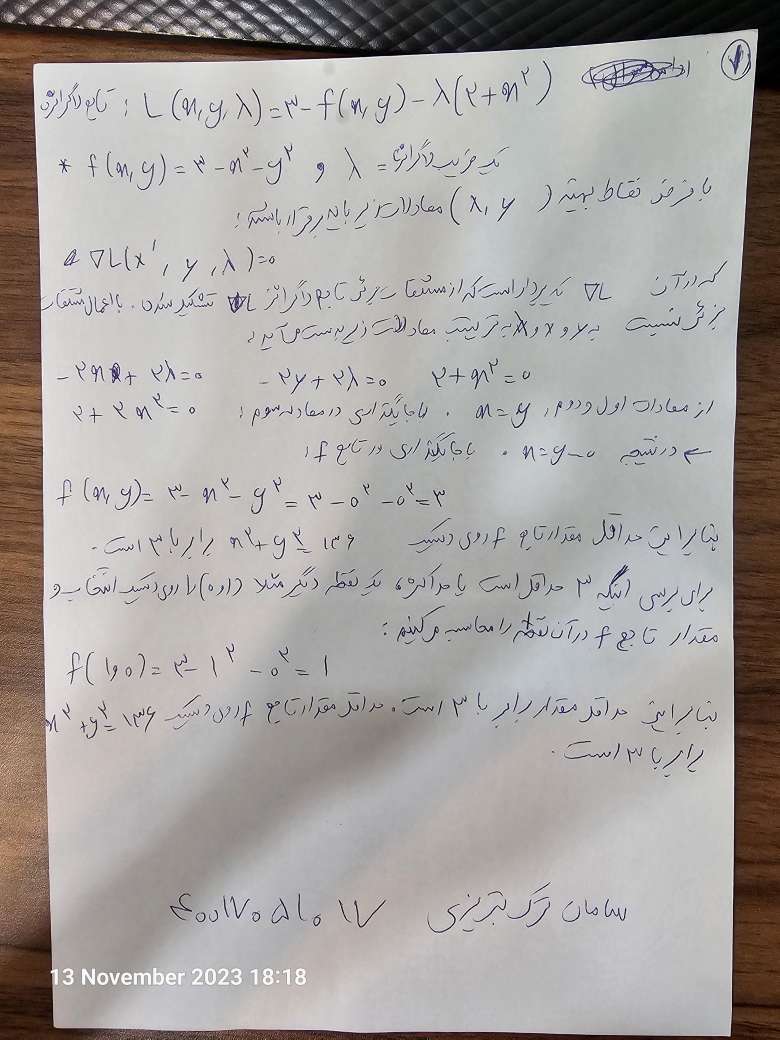 ۷
تابع لاگرانژ : L(x,y,λ)=۳-f(x,y)-λ(۲+x^۲)
* f(x,y)=۳-x^۲-y^۲ و λ = یک ضریب لاگرانژ
با فرض نقاط بهینه (x,y) معادلات زیر باید برقرار باشند:
∇L(x', y, λ)=۰
که در آن ∇L یک بردار است که از مشتقات جزئی تابع لاگرانژ L تشکیل شده. با اعمال مشتقات
جزئی نسبت به x و y و λ به ترتیب معادلات زیر به دست می آید:
-۲x+۲λ=۰ -۲y+۲λ=۰ ۲+x^۲=۰
از معادلات اول و دوم، x=y . با جایگذاری در معادله سوم: ۲+۲x^۲=۰
در نتیجه x=y=۰ . با جایگذاری در تابع f:
f(x,y)=۳-x^۲-y^۲=۳-۰^۲-۰^۲=۳
بنابراین حداقل مقدار تابع f روی دیسک x^۲+y^۲=۱۳۶ برابر با ۳ است.
برای بررسی اینکه ۳ حداقل است یا حداکثر، یک نقطه دیگر مثلا (۱و۰) را روی دیسک انتخاب و
مقدار تابع f در آن نقطه را محاسبه می کنیم:
f(۱و۰)=۳-۱^۲-۰^۲=۱
بنابراین حداقل مقدار برابر با ۳ است. حداقل مقدار تابع f روی دیسک x^۲+y^۲=۱۳۶
برابر با ۳ است.
سامان ترک تبریزی
13 November 2023 18:18